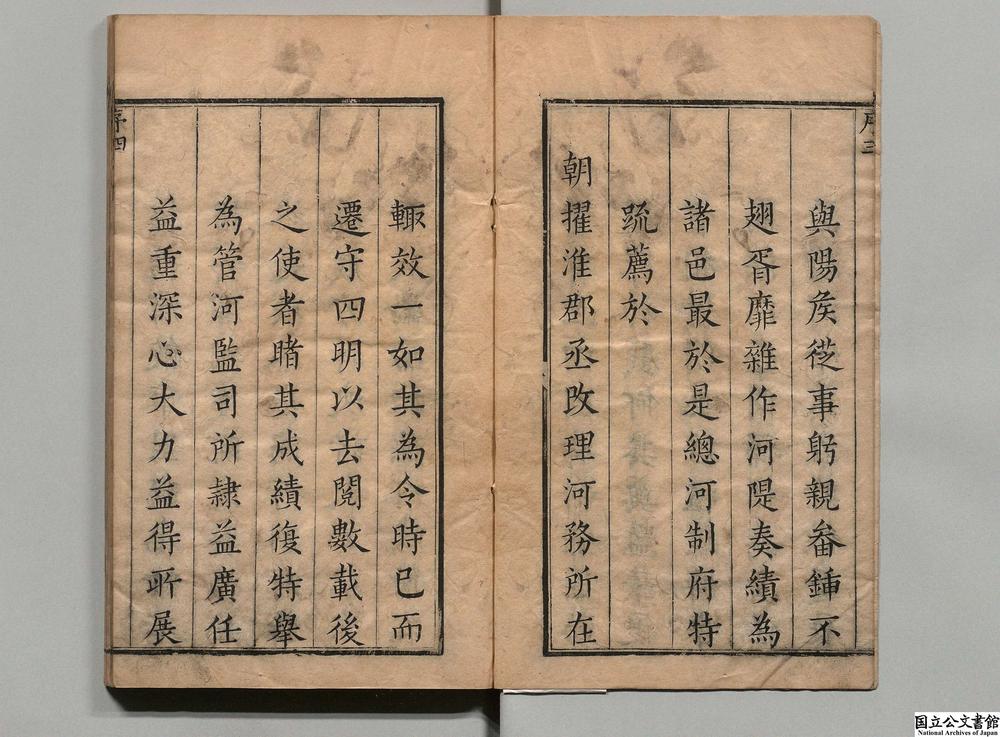 序三
與陽矦從事躬親畚鍤不
翅胥靡雜作河隄奏績為
諸邑最於是總河制府特
疏薦於
朝擢淮郡丞改理河務所在
輙效一如其為令時已而
遷守四明以去閱數載後
之使者睹其成績復特舉
為管河監司所隷益廣任
益重深心大力益得所展
序四
国立公文書館
National Archives of Japan